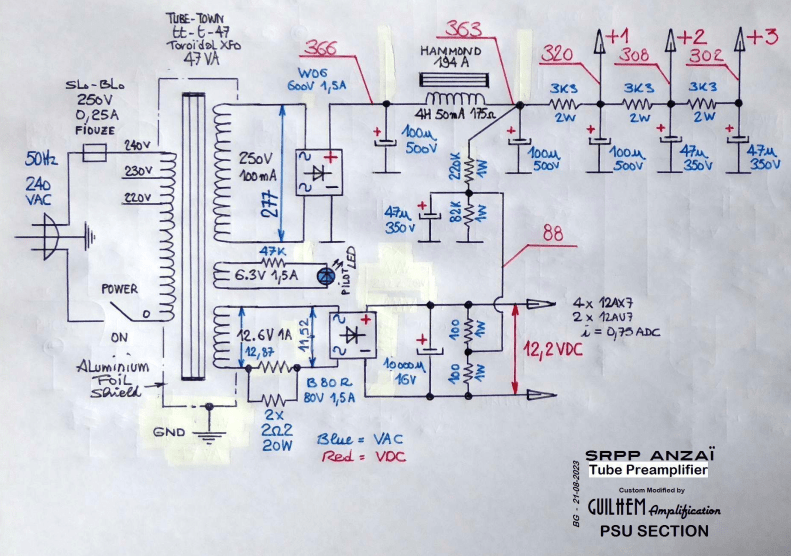 TUBE-TOWN
tt-t-47
Toroïdal XFO
47 VA
SLo-BLo
250V
0,25A
FIOUZE
50Hz
240
VAC
240V
230V
220V
POWER
O
ON
ALuminium
FoiL
Shield
GND
250V
100mA
277
W06
600V 1,5A
2
2
+
1
366
+
100µ
500V
HAMMOND
194A
4H 50mA 175Ω
363
+
100µ
500V
320
+1
3K3
2W
+
100µ
500V
308
+2
3K3
2W
+
47µ
350V
302
+3
3K3
2W
+
47µ
350V
220K
1W
82K
1W
+
47µ
350V
88
47K
6.3V 1,5A
PiLOT
LED
12.6V 1A
12,87
11,52
2x
2Ω2
20W
2
2
+
1
B80R
80V 1,5A
+
10000µ
16V
100
1W
100
1W
12,2VDC
4 x 12AX7
2 x 12AU7
i = 0,75 ADC
Blue = VAC
Red = VDC
BG - 21-08-2023
SRPP ANZAÏ
Tube Preamplifier
Custom Modified by
GUILHEM Amplification
PSU SECTION